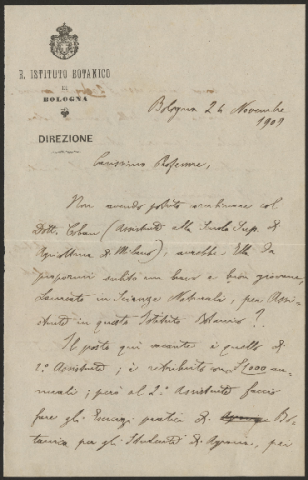 R. ISTITUTO BOTANICO
DI
BOLOGNA
DIREZIONE
Bologna 26 Novembre
1909
Carissimo Professore,
Non avendo potuto combinare col
Dott. (Assistente alla Scuola Sup. di
Agricoltura di Milano), avrebbe Ella da
propormi subito un bravo e buon giovane,
Laureato in Scienze Naturali, per Assi-
stente in questo Istituto Botanico?
Il posto qui vacante è quello di
2º Assistente; è retribuito con £1000 an-
nuali; però al 2º Assistente faccio
fare gli Esercizi pratici di Bo-
tanica per gli Studenti di Agraria, per